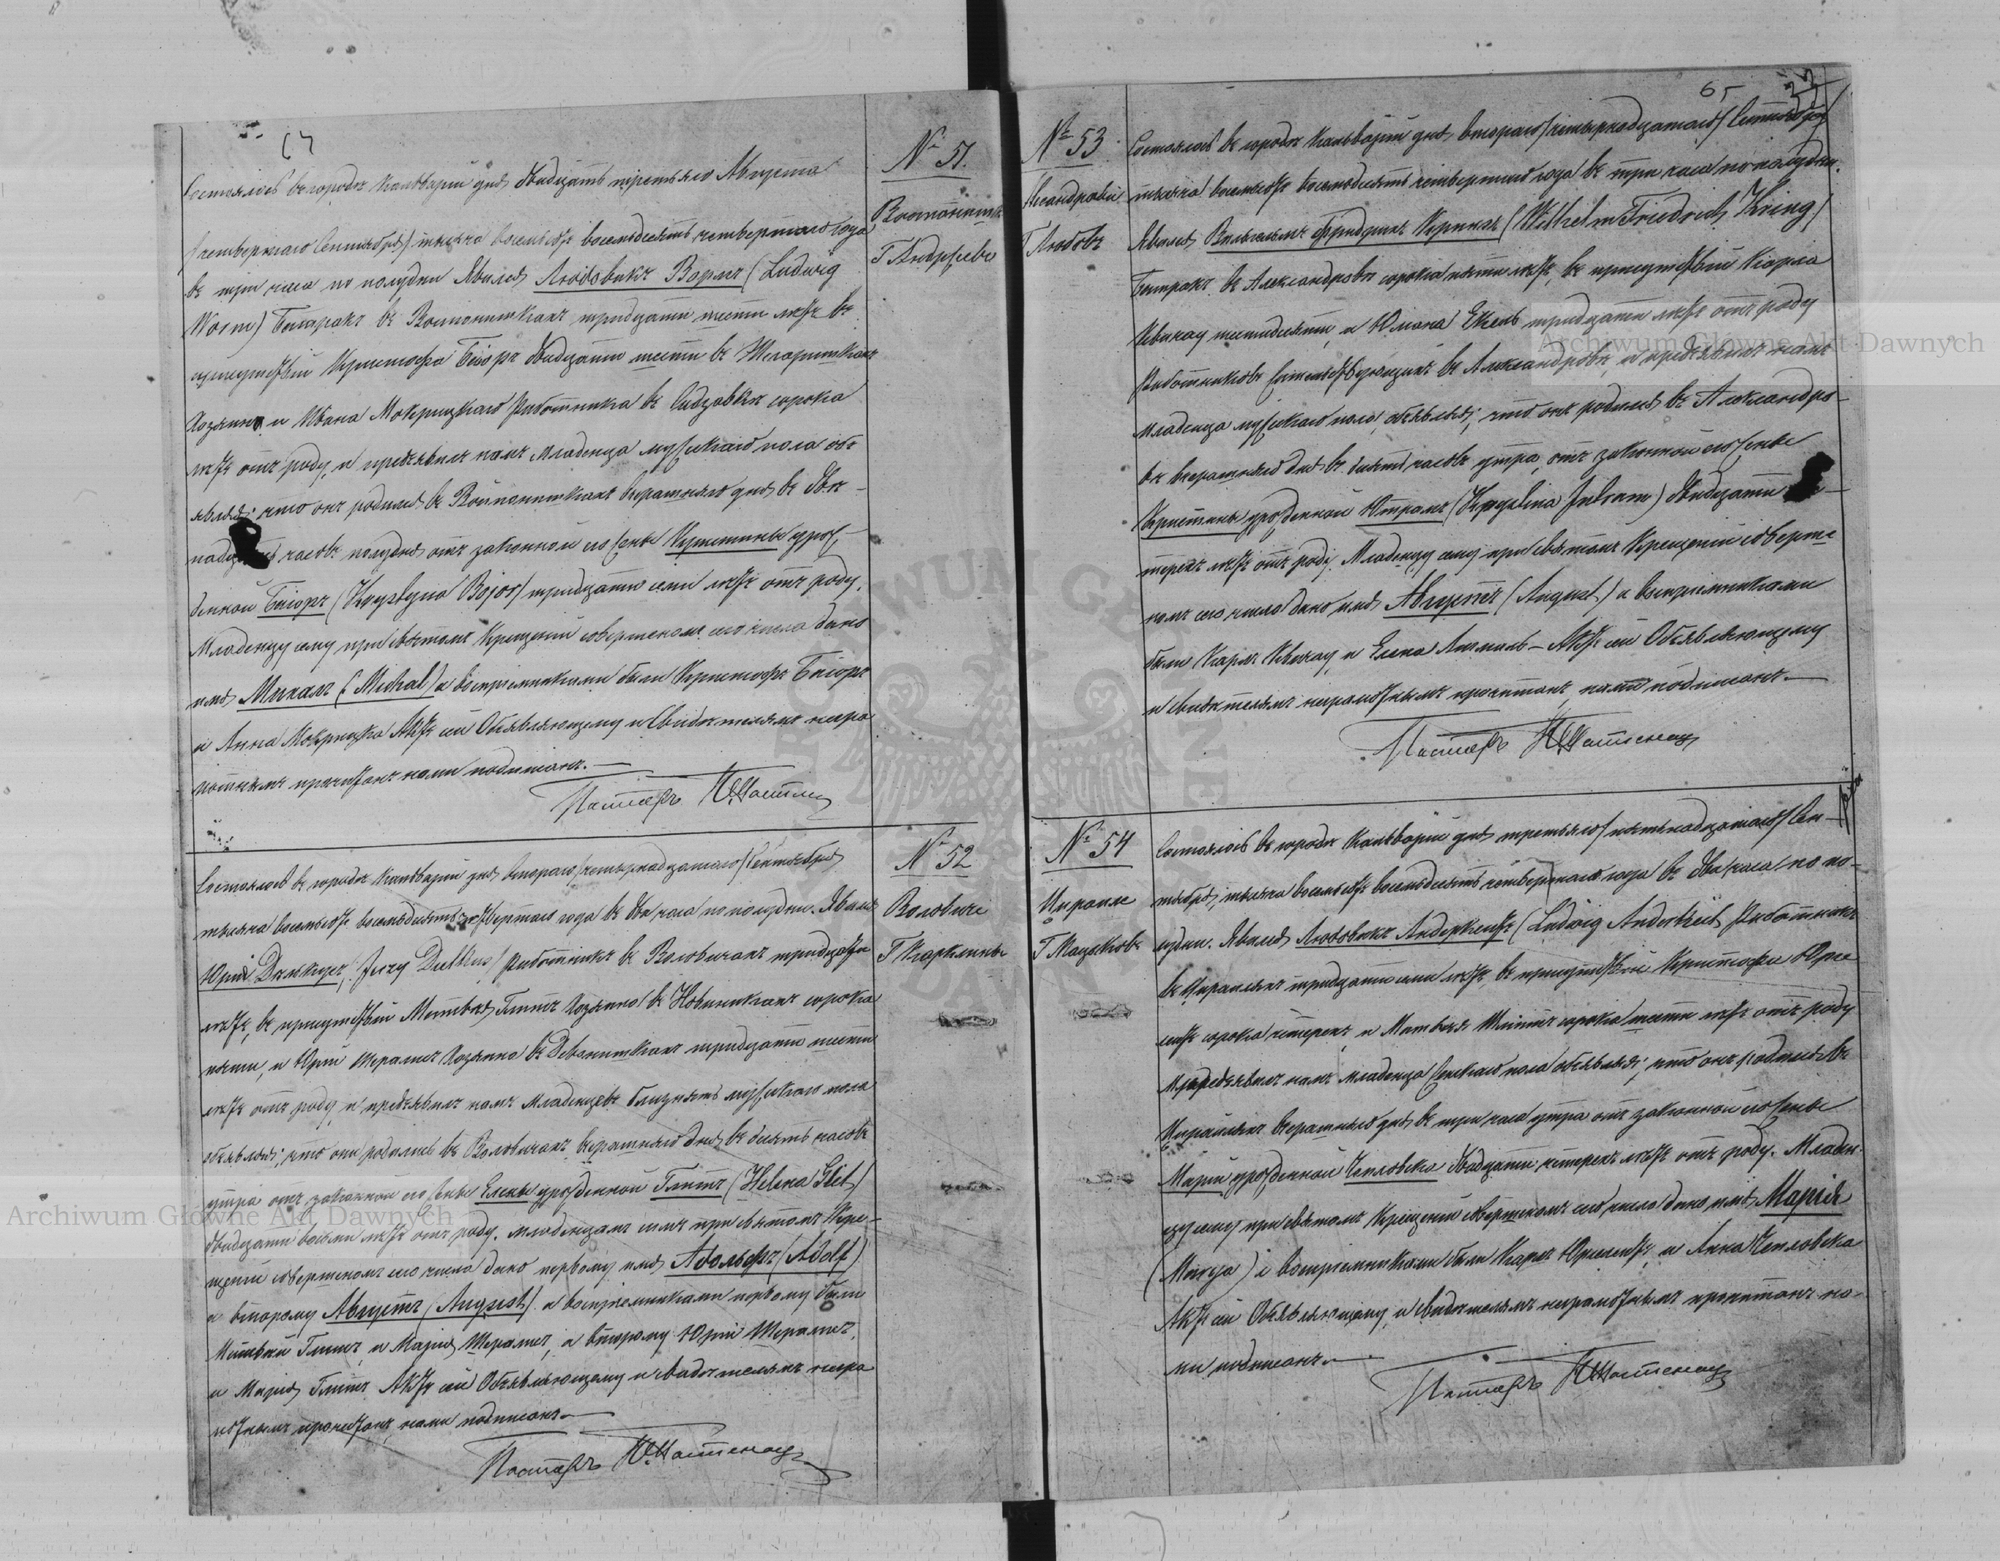 64
№ 51.
Войпонишк
Г. Андржеево
Состоялось въ городѣ Кальваріи дня двадцать третьяго Августа
/четвертаго Сентября/ тысяча восемьсотъ восемьдесятъ четвертаго года
въ три часа по полудни. Явился Людовикъ Вормъ (Ludwig
Worm) батракъ въ Войпонишкахъ тридцати шести лѣтъ въ
присутствіи Кристофа Боіоръ двадцати шести въ
хозяина и Ивана Мокрицкаго работника въ сорока
лѣтъ отъ роду, и предъявилъ намъ младенца мужескаго пола объ
являя; что онъ родился въ Войпонишкахъ вчерашняго дня въ двѣ-
надцать часовъ полудня отъ законной его жены Кристины урож-
денной Боіоръ (Krystyna Bojor) тридцати семи лѣтъ отъ роду.
Младенцу сему при святомъ крещеніи совершеномъ сего числа дано
имя Михалъ (Michal) а воспріемниками были Кристофъ Боіоръ
и Анна Мокрицка Актъ сей Объявляющему и Свидѣтелямъ негра
мотнымъ прочитанъ нами подписанъ.—
Пасторъ
№ 52
Воловиче
Г. Карклины
Состоялось въ городѣ Кальваріи дня втораго /четырнадцатаго/ Сентября
тысяча восемьсотъ восемьдесятъ четвертаго года въ два часа по полудни. Явился
Юрій Дыльгусъ, (Jerzy Dulkus) работникъ въ Воловичахъ тридцати
лѣтъ, въ присутствіи Матвея Глитъ хозяина въ Новиникахъ сорока
пяти, и Юрій хозяина въ тридцати шести
лѣтъ отъ роду, и предъявилъ намъ младенцевъ близнятъ мужескаго пола
объявляя; что они родились въ Воловичахъ вчерашняго дня въ десять часовъ
утра отъ законной его жены Елены урожденной Глитъ (Helena Glit)
двадцати восьми лѣтъ отъ роду. Младенцамъ симъ при святомъ кре-
щеніи совершеномъ сего числа дано первому имя Адольфъ (Adolf)
а второму Августъ (August). а воспріемниками первому были
Матвей Глитъ и Марія а второму Юрій
и Марія Глитъ Актъ сей Объявляющему и свидѣтелямъ негра
мотнымъ прочитанъ, нами подписанъ.—
Пасторъ
65
№ 53
Александрови
Г. Любовъ
Состоялось въ городѣ Кальваріи дня втораго /четырнадцатаго/ Сентября
тысяча восемьсотъ восемьдесятъ четвертаго года въ три часа по полудни.
Явился Вильгельмъ Фридрихъ Крингъ (Wilhelm Friedrich Kring)
батракъ въ Александровѣ сорока пяти лѣтъ, въ присутствіи Карла
шестидесяти, и тридцати лѣтъ отъ роду
работниковъ жительствующихъ въ Александровѣ и предъявилъ намъ
младенца мужескаго пола, объявляя; что онъ родился въ Александро-
вѣ вчерашняго дня въ десять часовъ утра, отъ законной его жены
Кристины урожденной двадцати
трехъ лѣтъ отъ роду. Младенцу сему при святомъ Крещеніи соверше
номъ сего числа дано имя Августъ (August.) а воспріемниками
были Карлъ и Елена Актъ сей Объявляющему
и свидѣтелямъ неграмотнымъ прочитанъ, нами подписанъ.—
Пасторъ
№ 54
Играйле
Г. Мацковъ
Состоялось въ городѣ Кальваріи дня третьяго /пятьнадцатаго/ Сен-
тября, тысяча восемьсотъ восемьдесятъ четвертаго года въ два часа по по-
лудни. Явился Людовикъ Андеркейтъ (Ludwig Anderkeit) работникъ
въ тридцати семи лѣтъ, въ присутствіи Кристофа
сорока четерехъ, и Матвея сорока шести лѣтъ отъ роду
и предъявилъ намъ младенца женскаго пола объявляя; что онъ родился въ
вчерашняго дня въ три часа утра отъ законной его жены
Маріи урожденной Чепловска двадцати четерехъ лѣтъ отъ роду. Младен-
цу сему при святомъ Крещеніи совершеномъ сего числа дано имя Марія
(Marya) а воспріемниками были Карлъ и Анна Чепловска
Актъ сей Объявляющему и свидѣтелямъ неграмотнымъ прочитанъ на-
ми подписанъ.—
Пасторъ
Archiwum Główne Akt Dawnych
Archiwum Główne Akt Dawnych